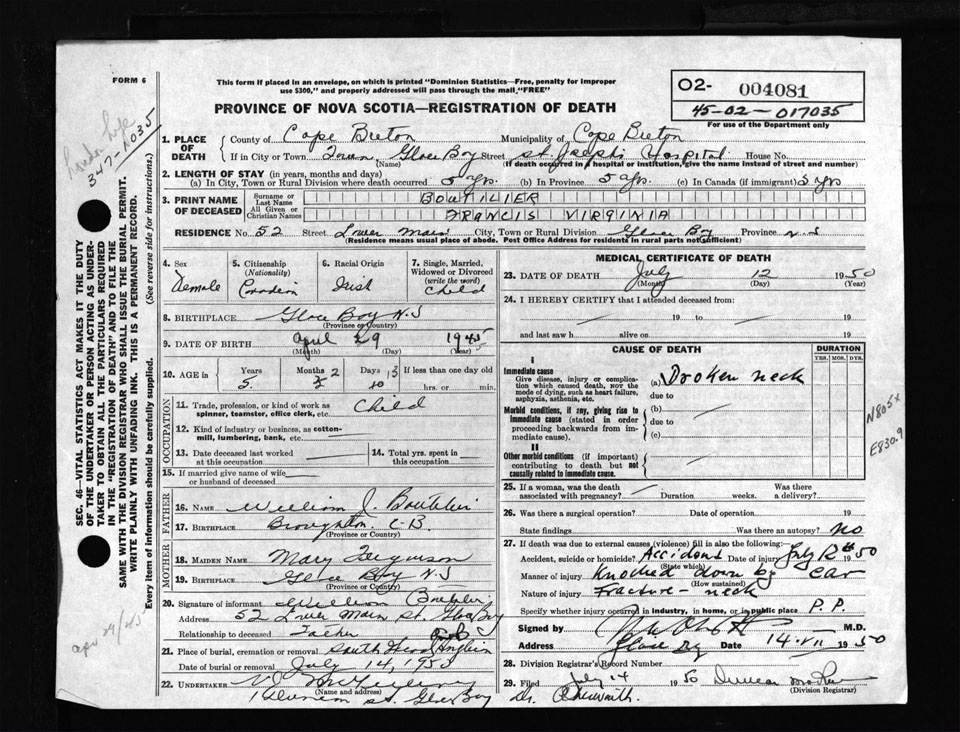 FORM 6
This form if placed in an envelope, on which is printed "Dominion Statistics—Free, penalty for improper
use $300," and properly addressed will pass through the mail "FREE"
PROVINCE OF NOVA SCOTIA—REGISTRATION OF DEATH
O2- 004081
45-02-017035
For use of the Department only
347-1035
SEC. 46—VITAL STATISTICS ACT MAKES IT THE DUTY
OF THE UNDERTAKER OR PERSON ACTING AS UNDER-
TAKER TO OBTAIN ALL THE PARTICULARS REQUIRED
IN THE "REGISTRATION OF DEATH" AND TO FILE THE
SAME WITH THE DIVISION REGISTRAR WHO SHALL ISSUE THE BURIAL PERMIT.
WRITE PLAINLY WITH UNFADING INK. THIS IS A PERMANENT RECORD.
Every item of information should be carefully supplied. (See reverse side for instructions.)
1. PLACE OF DEATH
County of Cape Breton Municipality of Cape Breton
If in City or Town Town, Glace Bay Street St Joseph's Hospital House No.
(Name) (If death occurred in a hospital or institution, give the name instead of street and number)
2. LENGTH OF STAY (in years, months and days)
(a) In City, Town or Rural Division where death occurred 5 yrs. (b) In Province 5 yrs. (c) In Canada (if immigrant) 5 yrs
3. PRINT NAME OF DECEASED
Surname or Last Name BOUTILIER
All Given or Christian Names FRANCIS VIRGINIA
RESIDENCE No. 52 Street Lower Main City, Town or Rural Division Glace Bay Province N.S
(Residence means usual place of abode. Post Office Address for residents in rural parts not sufficient)
4. Sex Female
5. Citizenship (Nationality) Canadian
6. Racial Origin Irish
7. Single, Married, Widowed or Divorced (write the word) Child
8. BIRTHPLACE Glace Bay N.S
(Province or Country)
9. DATE OF BIRTH April 29 1945
(Month) (Day) (Year)
10. AGE in Years 5 Months 2 Days 13 If less than one day old
10 hrs. or min.
OCCUPATION
11. Trade, profession, or kind of work as spinner, teamster, office clerk, etc. Child
12. Kind of industry or business, as cotton-mill, lumbering, bank, etc.
13. Date deceased last worked at this occupation
14. Total yrs. spent in this occupation
15. If married give name of wife or husband of deceased
FATHER
16. NAME William J. Boutilier
17. BIRTHPLACE Broughton C-B
(Province or Country)
MOTHER
18. MAIDEN NAME Mary Ferguson
19. BIRTHPLACE Glace Bay N.S
(Province or Country)
20. Signature of informant William Boutilier
Address 52 Lower Main St. Glace Bay
Relationship to deceased Father
21. Place of burial, cremation or removal South Head
Date of burial or removal July 14, 1950
22. UNDERTAKER
(Name and address)
St. Glace Bay
MEDICAL CERTIFICATE OF DEATH
23. DATE OF DEATH July 12 1950
(Month) (Day) (Year)
24. I HEREBY CERTIFY that I attended deceased from:
19 to 19
and last saw h alive on 19
CAUSE OF DEATH
DURATION
YRS. MOS. DYS.
I
Immediate cause
Give disease, injury or complication which caused death, NOT the mode of dying, such as heart failure, asphyxia, asthenia, etc.
(a) Broken neck
due to
Morbid conditions, if any, giving rise to immediate cause (stated in order proceeding backwards from immediate cause).
(b)
due to
(c)
II
Other morbid conditions (if important) contributing to death but not causally related to immediate cause.
N805x
E830.9
25. If a woman, was the death associated with pregnancy? Duration weeks. Was there a delivery?
26. Was there a surgical operation? Date of operation 19
State findings Was there an autopsy? No
27. If death was due to external causes (violence) fill in also the following:
Accident, suicide or homicide? Accident Date of injury July 12th 1950
(State which)
Manner of injury Knocked down by car
(How sustained)
Nature of injury Fracture - neck
Specify whether injury occurred in industry, in home, or in public place P. P.
Signed by M.D.
Address Glace Bay Date 14 . VII 1950
28. Division Registrar's Record Number
29. Filed July 14 1950 Duncan
(Division Registrar)
Dr.